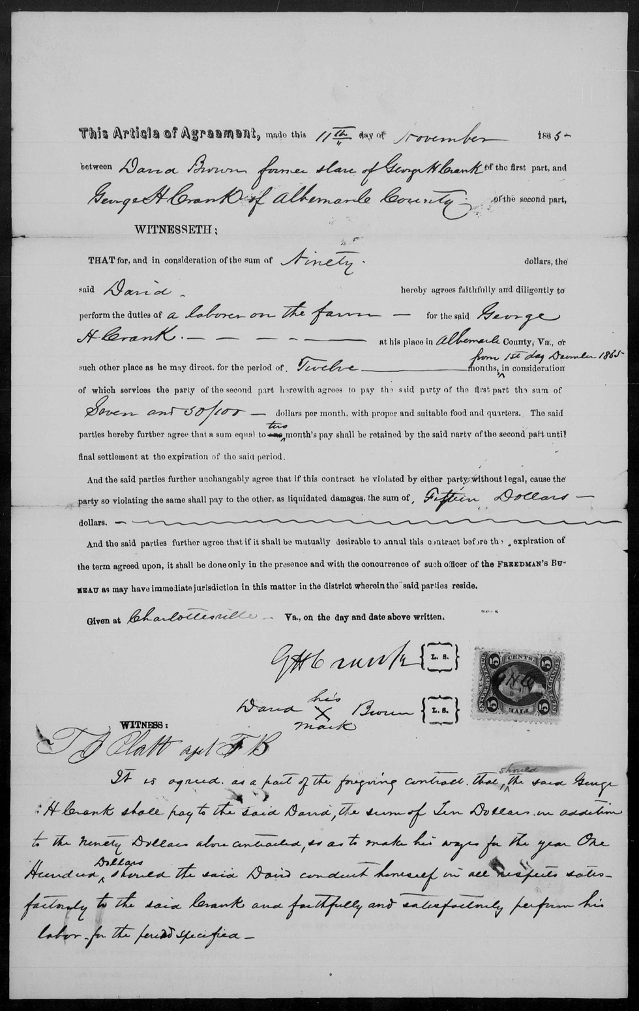 This Article of Agreement, made this 11th day of November 1865
between David Brown former slave of George H Crank of the first part, and
George H Crank of Albemarle County of the second part,
WITNESSETH;
THAT for, and in consideration of the sum of Ninety dollars, the
said David hereby agrees faithfully and diligently to
perform the duties of a laborer on the farm for the said George
H Crank. at his place in Albemarle County, Va., or
from 1st day December 1865
such other place as he may direct. for the period of Twelve months, in consideration
of which services the party of the second part herewith agrees to pay the said party of the first part the sum of
Seven and 50/100 dollars per month, with proper and suitable food and quarters. The said
parties hereby further agree that a sum equal to two month's pay shall be retained by the said party of the second part until
final settlement at the expiration of the said period.
And the said parties further unchangably agree that if this contract be violated by either party, without legal, cause the
party so violating the same shall pay to the other, as liquidated damages, the sum of Fifteen Dollars
dollars.
And the said parties further agree that if it shall be mutually desirable to annul this contract before the expiration of
the term agreed upon, it shall be done only in the presence and with the concurrence of such officer of the FREEDMAN'S BU-
REAU as may have immediate jurisdiction in this matter in the district wherein the said parties reside.
Given at Charlottesville Va., on the day and date above written.
G H Crank L. S.
David his X mark Brown L. S.
5 CENTS 5
FIVE
WITNESS:
It is agreed as a part of the foregoing contract that should the said George
H Crank shall pay to the said David, the sum of Ten Dollars in addition
to the Ninety Dollars above contracted, so as to make his wages for the year One
Hundred Dollars should the said David conduct himself in all respects satis-
factorily to the said Crank and faithfully and satisfactorily perform his
labor for the period specified